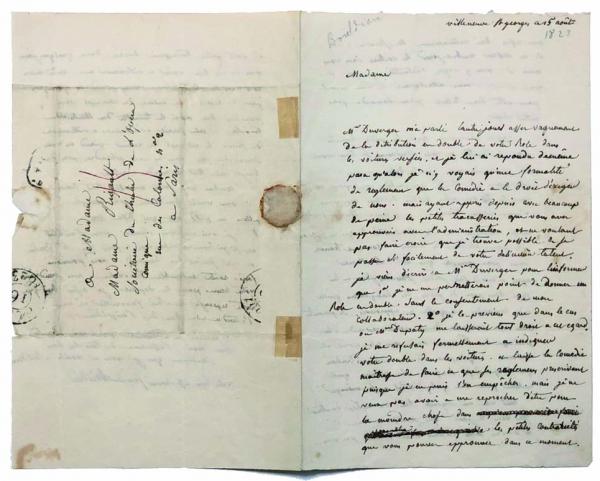 Boieldieu
villeneuve St georges ce 15 août
1823
Madame
Mr Duverger m'a parlé l'autre jour assez vaguement
de la distribution en double de votre Role dans
les voitures versées, et je lui ai repondu
parce qu'alors je n'y voyais qu'une formalité
de reglement que la Comédie a le droit d'exiger
de nous. mais ayant appris depuis avec beaucoup
de peine les petites tracasseries que vous avez
eprouvées avec l'administration, et ne voulant
pas faire croire que je trouve possible de se
passer si facilement de votre talent,
je viens d'ecrire a Mr Duverger pour l'informer
que 1o je ne me permettrais point de donner un
Role en double sans le consentement de mon
Collaborateur. 2o je le previens que dans le cas
ou Mr Dupaty me laisserait tout droit a cet egard,
je me refusais formellement a indiquer
votre double dans les voitures. je laisse la Comédie
maitresse de faire ce que ses reglemens prescrivent
puisque je ne puis l'en empêcher, mais je ne
veux pas avoir a me reprocher d'être pour
la moindre chose dans les petites contrariétés
que vous pouvez eprouver dans ce moment.
a Madame
Madame Rigault
Societaire du Theatre de l'Opera
Comique
rue des Colonnes no 2
a Paris